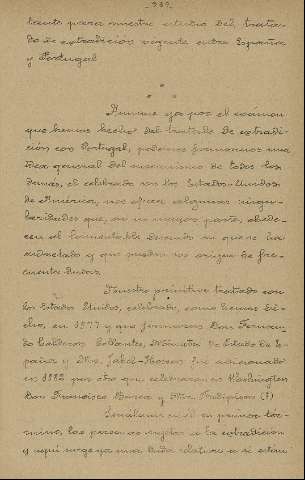 tiente para nuestro estudio del trata-
do de extradición vigente entre España
y Portugal.
* * *
Aunque ya por el exámen
que hemos hecho del tratado de extradi-
ción con Portugal, podemos formarnos una
idea general del mecanismo de todos los
demás, el celebrado con los Estados-Unidos
de América, nos ofrece algunas singu-
laridades que, en su mayor parte, obede-
cen al lamentable descuido en que se ha
redactado y que suelen ser origen de fre-
cuentes dudas.
Nuestro primitivo tratado con
los Estados Unidos, celebrado, como hemos di-
cho, en 1877 y que firmaron Don Fernan-
do Calderon Collantes, Ministro de Estado de Es-
paña y Mr. Caleb Cushing fué adicionado
en 1882 por otro que celebraron en Washington
Don Francisco Barca y Mr. Frelinghuysen (1)
Señálanse en él en primer tér-
mino, las personas sujetas a la extradicion
y aqui surge ya una duda relativa a si están